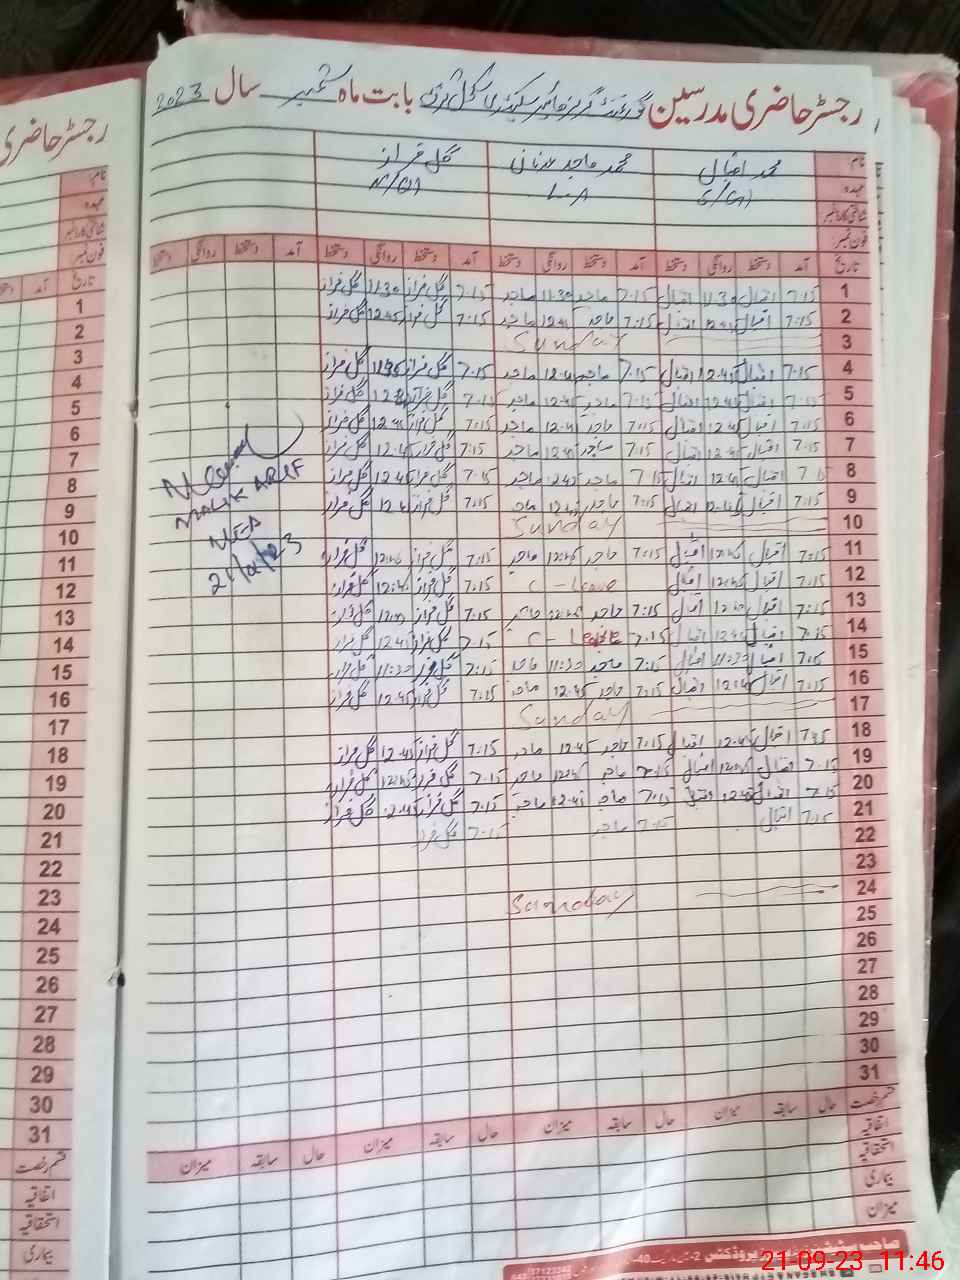 رجسٹر حاضری مدرسین گورنمنٹ گرلز ہائیر سیکنڈری بابت ماہ ستمبر سال 2023
نام: محمد اقبال محمد ماجد عدنان گل فراز
عہدہ L-A
شناختی کارڈ نمبر
فون نمبر:
تاریخ آمد دستخط روانگی دستخط آمد دستخط روانگی دستخط آمد دستخط روانگی دستخط آمد دستخط روانگی دستخط
1 7:15 اقبال 11:30 اقبال 7:15 ماجد 11:30 ماجد 7:15 گل فراز 11:30 گل فراز
2 7:15 اقبال 12:45 اقبال 7:15 ماجد 12:45 ماجد 7:15 گل فراز 12:45 گل فراز
3 Sunday
4 7:15 اقبال 12:45 اقبال 7:15 ماجد 12:45 ماجد 7:15 گل فراز گل فراز
5 7:15 اقبال 12:45 اقبال 7:15 ماجد 12:45 ماجد 7:15 گل فراز گل فراز
6 7:15 اقبال 12:45 اقبال 7:15 ماجد 12:45 ماجد 7:15 گل فراز 12:45 گل فراز
7 7:15 اقبال 12:45 اقبال 7:15 ماجد 12:45 ماجد 7:15 گل فراز 12:45 گل فراز
8 7:15 اقبال 12:45 اقبال 7:15 ماجد 12:45 ماجد 7:15 گل فراز 12:45 گل فراز
9 7:15 اقبال 12:45 اقبال 7:15 ماجد 12:45 ماجد 7:15 گل فراز 12:45 گل فراز
10 Sunday
11 7:15 اقبال 12:45 اقبال 7:15 ماجد 12:45 ماجد 7:15 گل فراز 12:45 گل فراز
12 7:15 اقبال 12:45 اقبال C-Leave 7:15 گل فراز 12:45 گل فراز
13 7:15 اقبال 12:45 اقبال 7:15 ماجد 12:45 ماجد 7:15 گل فراز 12:45 گل فراز
14 7:15 اقبال 12:45 اقبال 7:15 C-Leave 7:15 گل فراز 12:45 گل فراز
15 7:15 اقبال 11:30 اقبال 7:15 ماجد 11:30 ماجد 7:15 گل فراز 11:30 گل فراز
16 7:15 اقبال 12:45 اقبال 7:15 ماجد 12:45 ماجد 7:15 گل فراز 12:45 گل فراز
17 Sunday
18 7:15 اقبال 12:45 اقبال 7:15 ماجد 12:45 ماجد 7:15 گل فراز 12:45 گل فراز
19 7:15 اقبال 12:45 اقبال 7:15 ماجد 12:45 ماجد 7:15 گل فراز 12:45 گل فراز
20 7:15 اقبال 12:45 اقبال 7:15 ماجد 12:45 ماجد 7:15 گل فراز 12:45 گل فراز
21 7:15 اقبال 7:15 ماجد 7:15 گل فراز
22
23
24 Sunday
25
26
27
28
29
30
31
قسم رخصت حال سابقہ میزان حال سابقہ میزان حال سابقہ میزان حال سابقہ میزان
اتفاقیہ
استحقاقیہ
بیماری
میزان
MALIK ARIF
رجسٹر حاضری
نام:
عہدہ
شناختی کارڈ نمبر
فون نمبر:
تاریخ آمد
1
2
3
4
5
6
7
8
9
10
11
12
13
14
15
16
17
18
19
20
21
22
23
24
25
26
27
28
29
30
31
قسم رخصت
اتفاقیہ
استحقاقیہ
بیماری
21-09-23 11:46